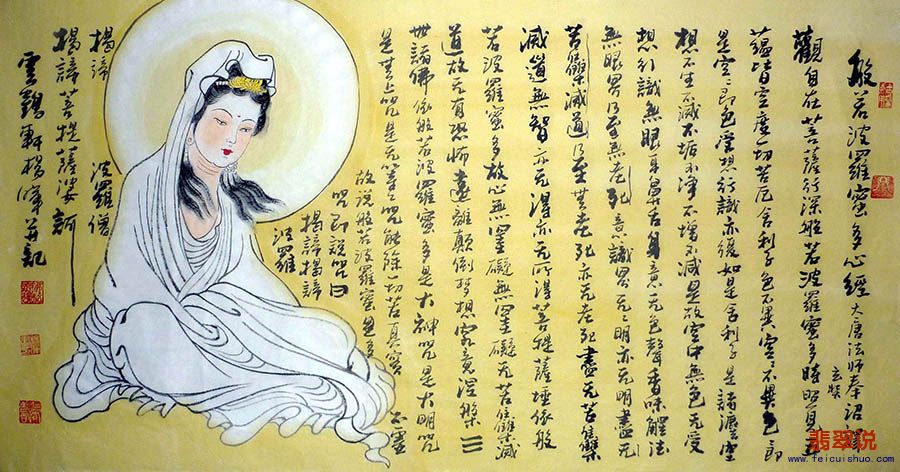 般若波羅蜜多心經 大唐法師奉詔譯
玄奘
觀自在菩薩行深般若波羅蜜多時照見五
蘊皆空度一切苦厄舍利子色不異空空不異色即
是空空即色受想行識亦復如是舍利子是諸法空
想不生不滅不垢不淨不增不減是故空中無色无受
想行識無眼耳鼻舌身意无色聲香味觸法
無眼界乃至無老死意識界无无明亦无明盡无
苦集滅道乃至無老死亦无老死盡无苦集
滅道無智亦无得亦无所得菩提薩埵依般
若波羅蜜多故心無罣礙無罣礙无苦集滅
道故无有恐怖遠離顛倒夢想究竟涅槃三
世諸佛依般若波羅蜜多是大神咒是大明咒
是無上咒是无等等咒能除一切苦真實不虛
故说般若波羅蜜多
咒即説咒曰
揭諦揭諦
波羅
揭諦 波羅僧
揭諦菩提薩婆訶
雲鶴軒楊峰并記
翡翠说
www.feicuishuo.com